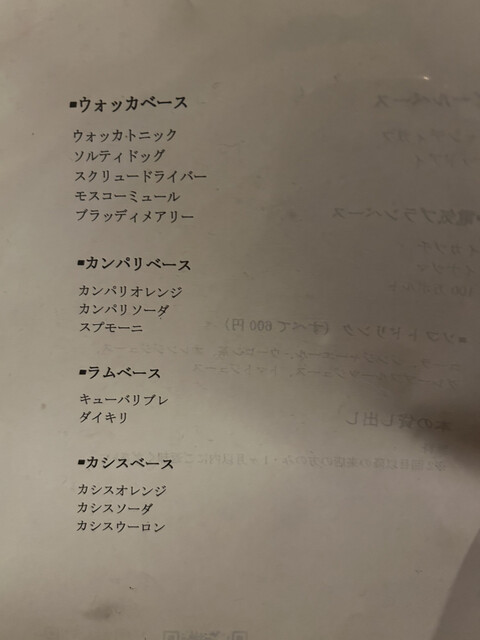 ■ウォッカベース
ウォッカトニック
ソルティドッグ
スクリュードライバー
モスコーミュール
ブラッディメアリー
■カンパリベース
カンパリオレンジ
カンパリソーダ
スプモーニ
■ラムベース
キューバリブレ
ダイキリ
■カシスベース
カシスオレンジ
カシスソーダ
カシスウーロン
電気ブランベース
■ソフトドリンク（すべて600円）
本の貸し出し